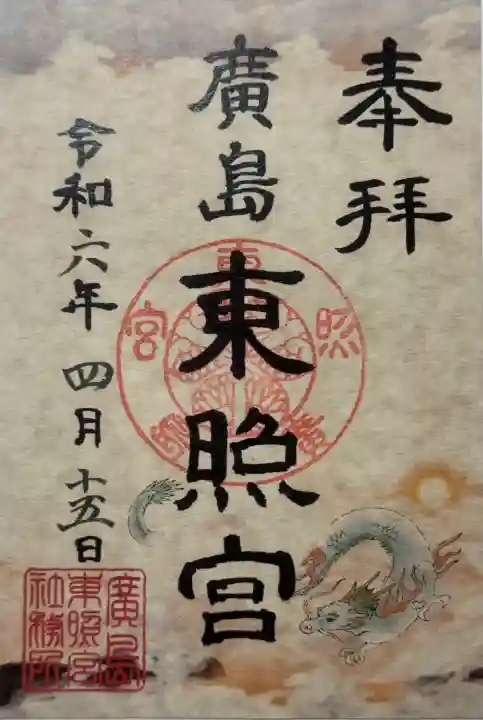 奉拝
廣島東照宮
令和六年四月十五日
廣島
東照宮
社務所